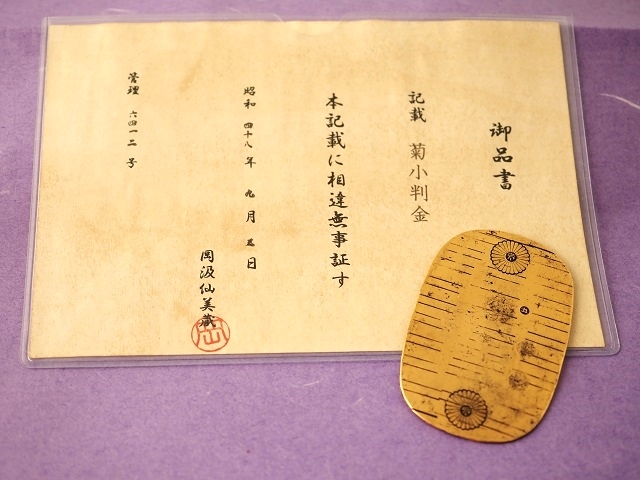 御品書
記載 菊小判金
本記載に相違無事証す
昭和 四十八年 九月 五日
管理 六四一二号
岡汲仙美蔵